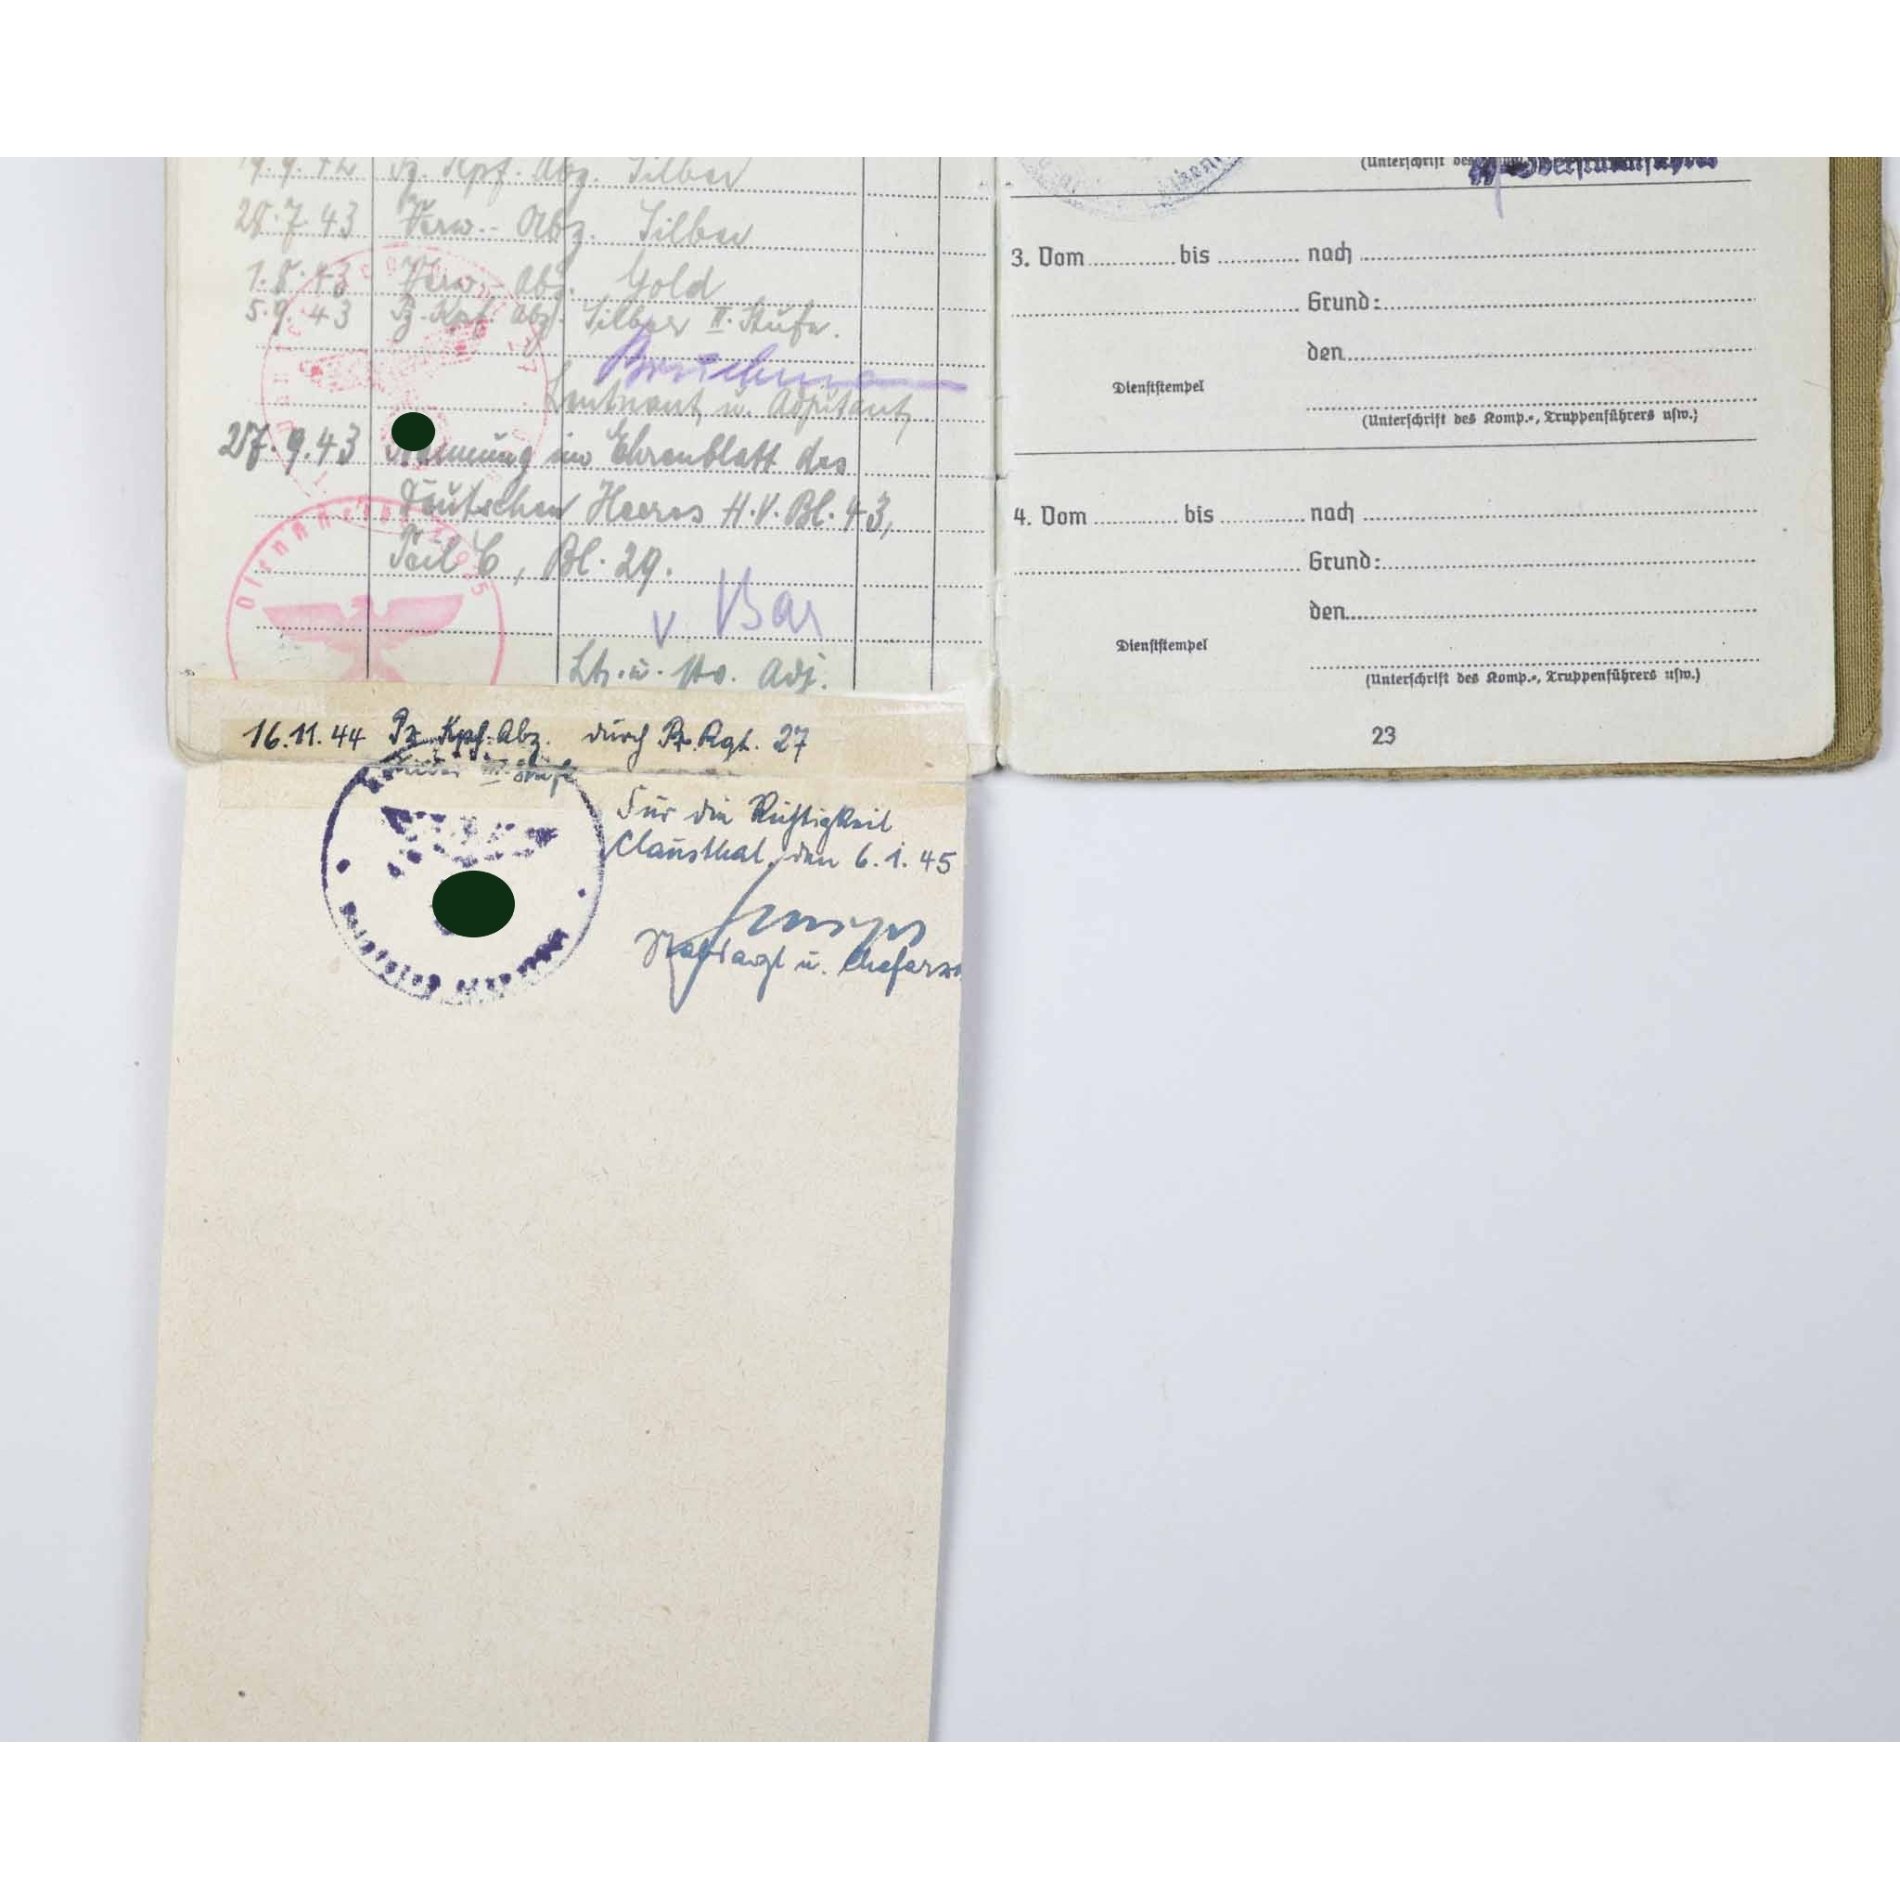 19.9.42 Pz. Kpf. Abz. Silber
28.7.43 Verw.- Abz. Silber
1.8.43 Verw.- Abz. Gold
5.9.43 Pz. Kpf. Abz. Silber II. Stufe.
Leutnant u. Adjutant
27.9.43 Nennung im Ehrenblatt des
Deutschen Heeres H.V. Bl. 43,
Teil C, Bl. 29.
v Bar
Lt. u. stv. Adj.
16.11.44 Pz. Kpf. Abz. durch Pz. Rgt. 27
Silber III. Stufe
Für die Richtigkeit
Clausthal, den 6.1.45
Stabsarzt u. Chefarzt
(Unterschrift des
3. Vom bis nach
Grund:
den
Dienststempel
(Unterschrift des Komp.-, Truppenführers usw.)
4. Vom bis nach
Grund:
den
Dienststempel
(Unterschrift des Komp.-, Truppenführers usw.)
23